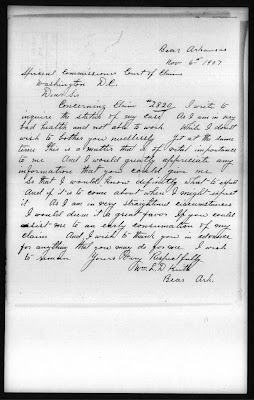 Bear Arkansas
Nov 6th 1907
Special Commissioner Court of Claims
Washington D.C.
Dear Sir
Concerning Claim #2820 I write to
inquire the status of my case As I am in very
bad health and not able to work While I don't
wish to bother you needlessly Yet at the same
time this is a matter that is of vital importance
to me And I would greatly appreciate any
information that you could give me
So that I would know definitly what to expect
And if it is to come about when I might expect
it As I am in very straightened circumstances
I would deem it a great favor If you could
assist me to an early consumation of my
claim And I wish to thank you in advance
for anything that you may do for me I wish
to remain Yours Very Respectfully
Wm L D
Bear Ark.